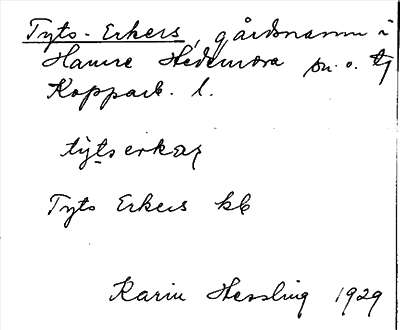 Tyts-Erkers, gårdsnamn i
Hamre Hedemora sn. o. tg
Kopparb. l.
tytserkaʃ
Tyts Erkers kb
Karin Hessling 1929